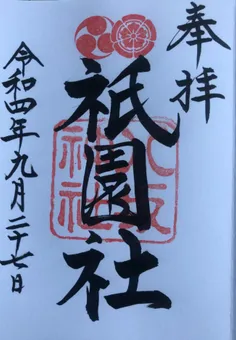 奉拝
祇園社
八坂神社
令和四年九月二十七日